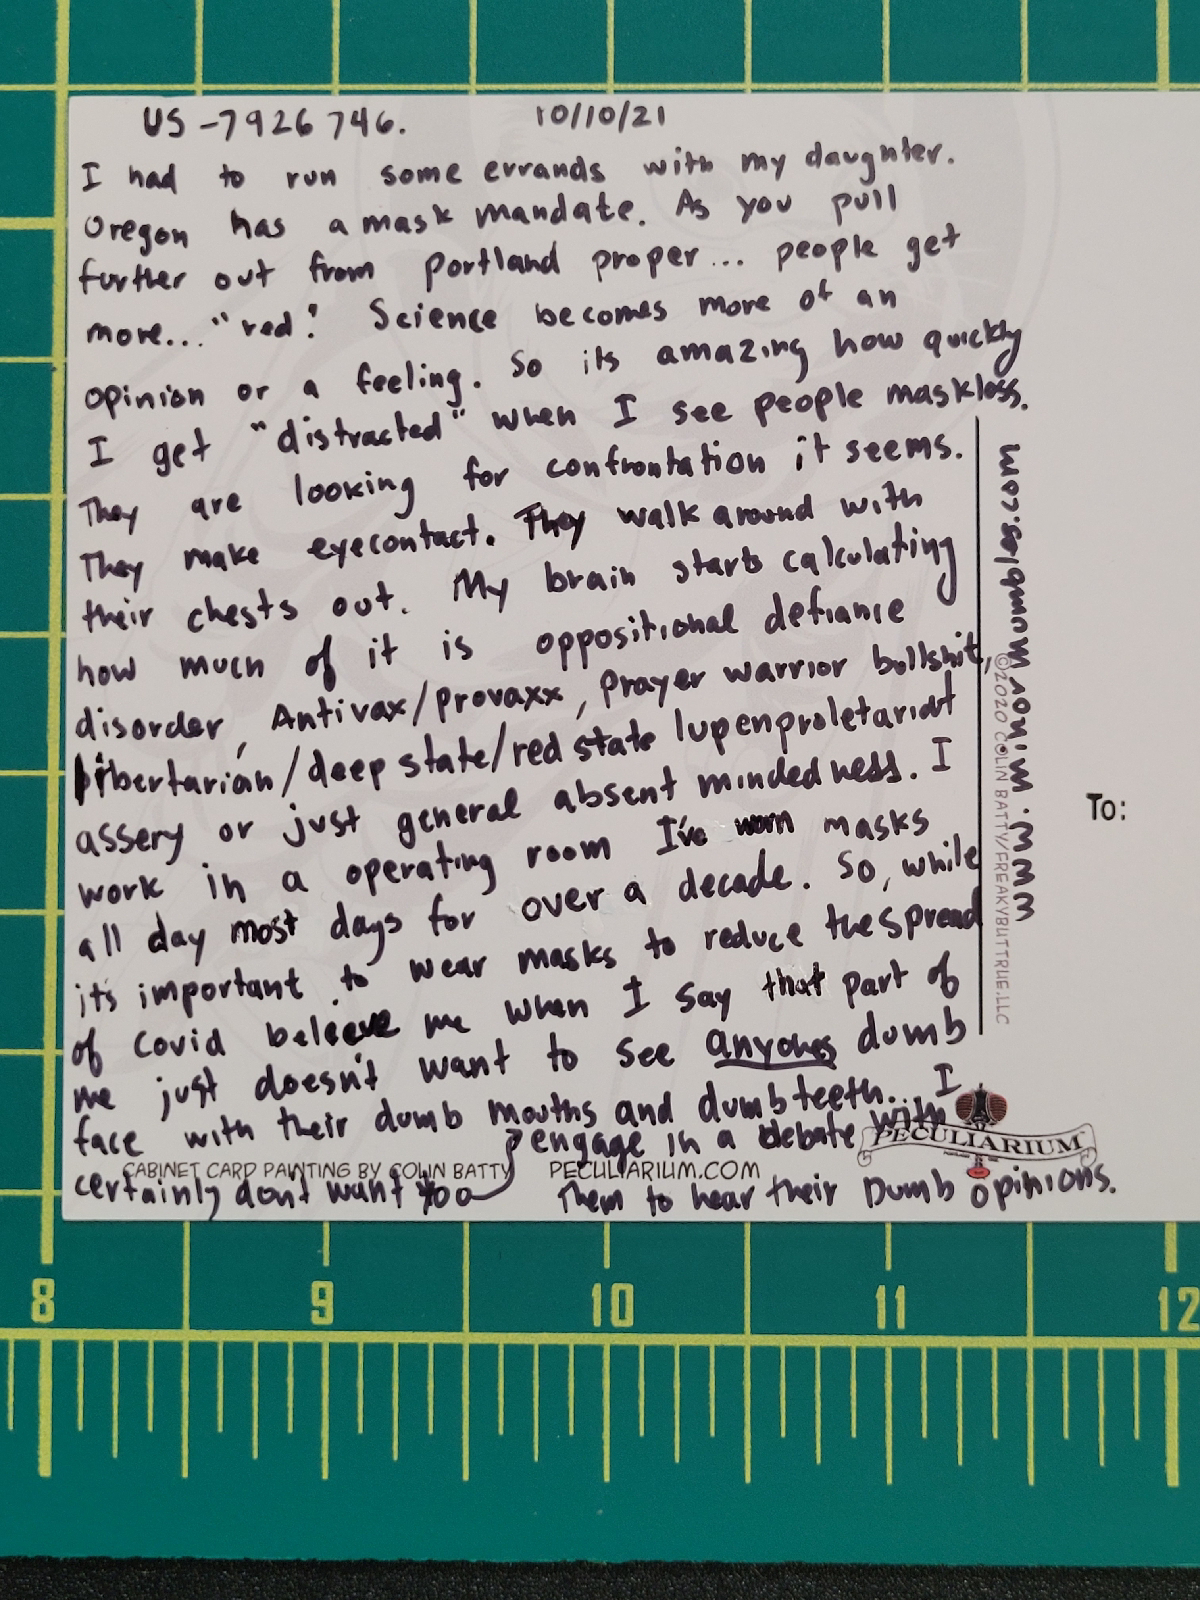 US -7926746. 10/10/21
I had to run some errands with my daughter.
Oregon has a mask mandate. As you pull
further out from Portland proper... people get
more... "red". Science becomes more of an
opinion or a feeling. So its amazing how quickly
I get "distracted" when I see people maskless.
They are looking for confrontation it seems.
They make eyecontact. They walk around with
their chests out. My brain starts calculating
how much of it is oppositional defiance
disorder, Antivax/provaxx, prayer warrior bullshit,
libertarian/deep state/red state lupenproletariat
assery or just general absent mindedness. I
work in a operating room I've worn masks
all day most days for over a decade. So, while
its important to wear masks to reduce the spread
of Covid beleeve me when I say that part of
me just doesn't want to see anyones dumb
face with their dumb mouths and dumb teeth. I
certainly dont want too engage in a debate with
them to hear their Dumb opinions.
CABINET CARD PAINTING BY COLIN BATTY PECULIARIUM.COM
PECULIARIUM
www.minorwumbles.com
©2020 COLIN BATTY/FREAKYBUTTRUE.LLC
To:
8 9 10 11 12